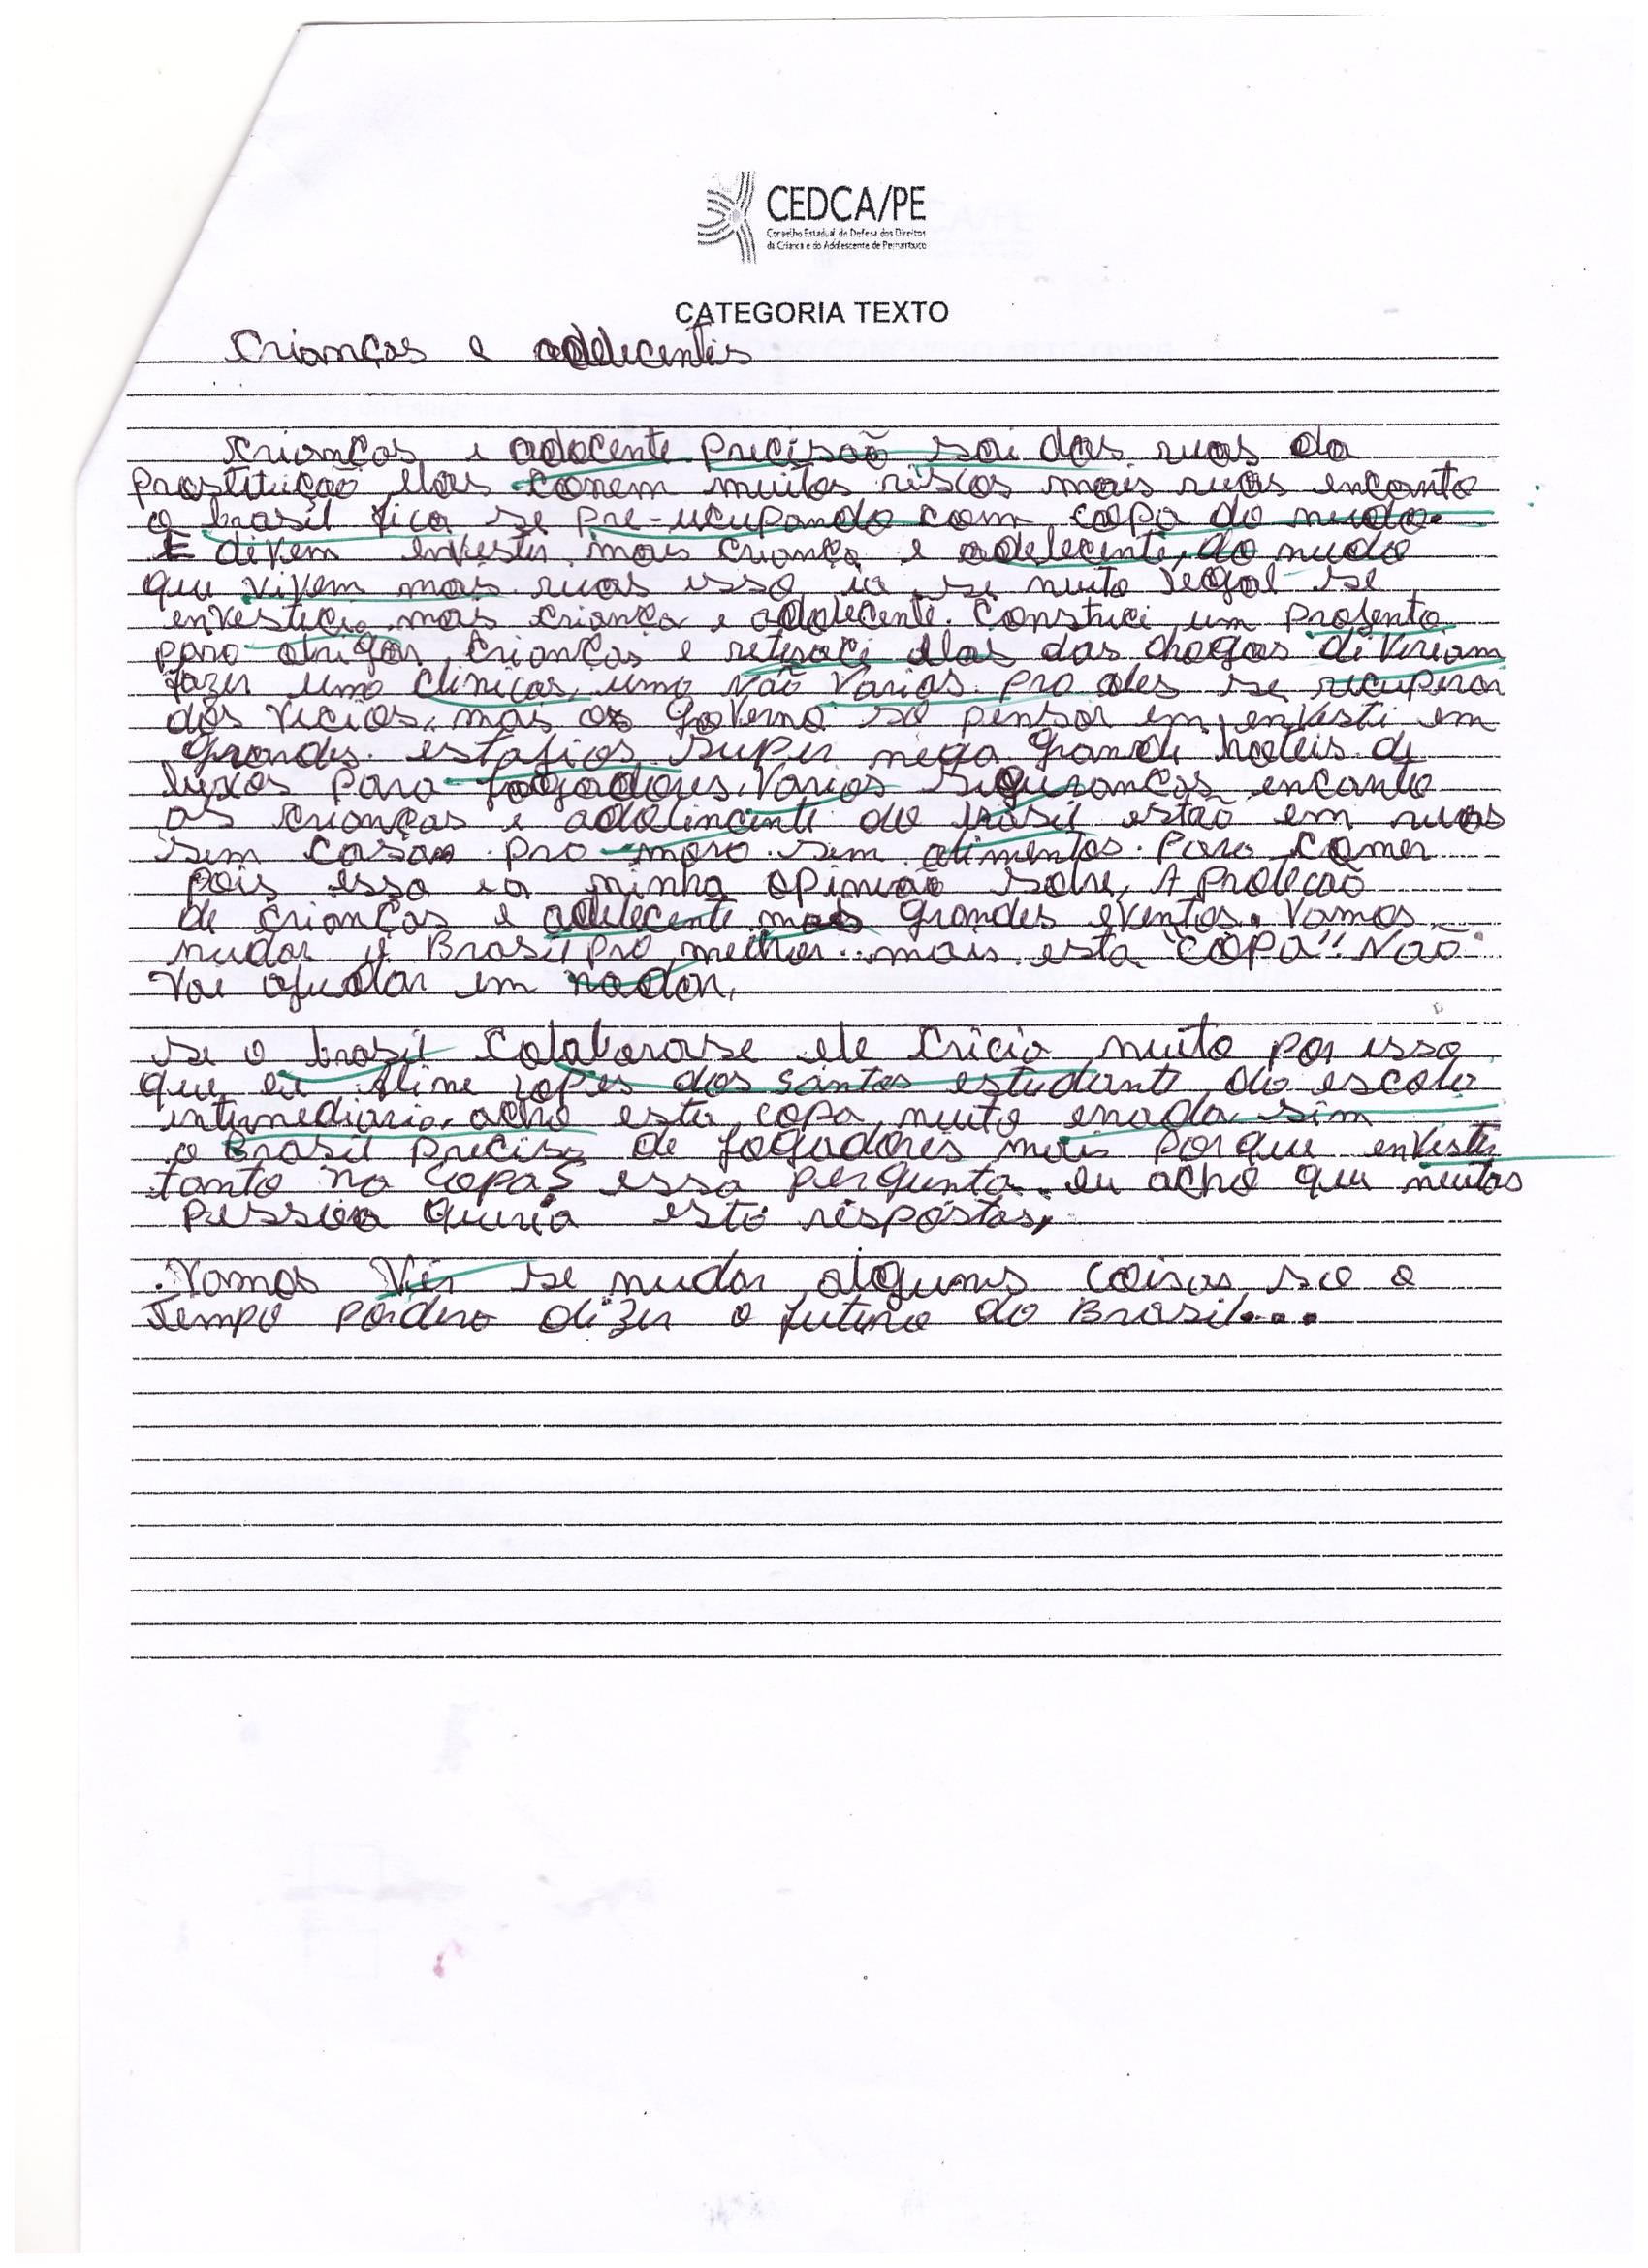 CEDCA/PE
Conselho Estadual de Defesa dos Direitos
da Criança e do Adolescente de Pernambuco
CATEGORIA TEXTO
Crianças e adelecentes
Crianças e adocente precisão sai das ruas da
prostituição elas correm muitos riscos mais ruas encanto
o brasil fica se pre-ucupando com copa do mudo.
E divem envestir mais criança e adelecente, do mudo
que vivem mas ruas isso ia se muito legal se
envesticia mas criança e adolecente. Constuci um prosento
para abrigar crianças e retiraci elas das drogas diviriam
fazer uma clinicas, uma não varias pra eles se recuperar
dos vicios, mais os governo só pensar em envesti em
grandes estafios super mega grande hoteis de
luxos para jogadores. Varios siguranças encanto
as crianças e adolincente do brasil estão em ruas
sem casas pra mora sem alimentos. Para comer
pois essa e a minha opinião sobre, A proteção
de crianças e adelecente mas grandes eventos. Vamos
mudar o Brasil pro melhor.. mais esta "COPA" Não
vai ajudar em nadar,
se o brasil colaborase ele cricia muito por isso
que eu Aline lopes dos santos estudante da escola
intermediaria, acho esta copa muito enada sim
o Brasil precisa de jogadores mais porque envestir
tanto na copa? essa pergunta eu acho que muitas
pessoa queria esta respostas,
.Vamos Ver se mudar algumas coisas so o
Tempo podera dizer o futuro do Brasil...